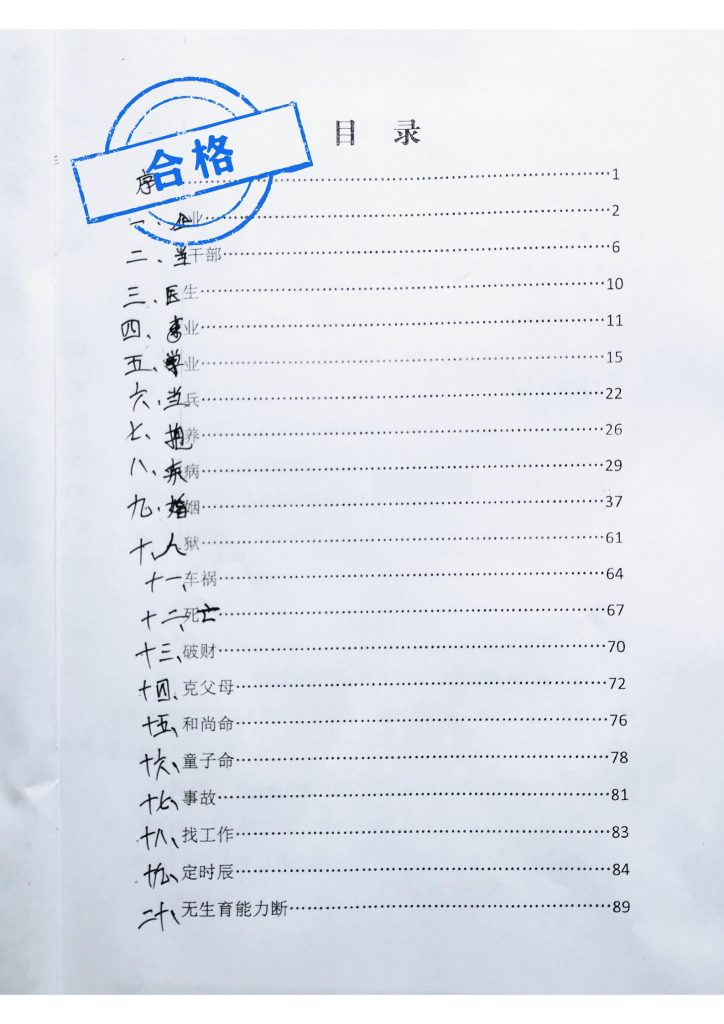 目 录
合格
序……1
一、企业……2
二、当干部……6
三、医生……10
四、事业……11
五、学业……15
六、当兵……22
七、抱养……26
八、疾病……29
九、婚姻……37
十、入狱……61
十一、车祸……64
十二、死亡……67
十三、破财……70
十四、克父母……72
十五、和尚命……76
十六、童子命……78
十七、事故……81
十八、找工作……83
十九、定时辰……84
二十、无生育能力断……89